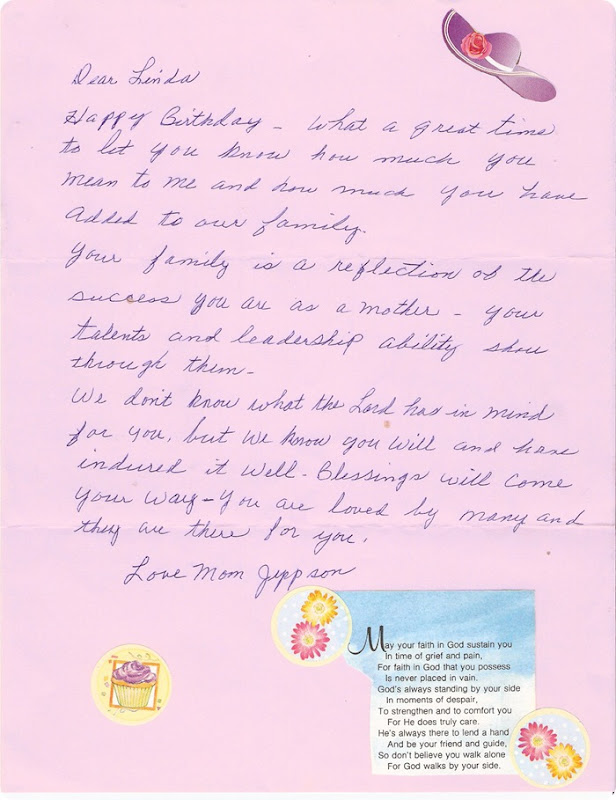 Dear Linda
Happy Birthday - What a great time
to let you know how much you
mean to me and how much you have
added to our family.
Your family is a reflection of the
success you are as a mother - your
talents and leadership ability show
through them -
We don't know what the Lord has in mind
for you, but we know you will and have
indured it well - Blessings will come
your way - you are loved by many and
they are there for you.
Love Mom Jeppson
May your faith in God sustain you
In time of grief and pain,
For faith in God that you possess
Is never placed in vain.
God's always standing by your side
In moments of despair,
To strengthen and to comfort you
For He does truly care.
He's always there to lend a hand
And be your friend and guide,
So don't believe you walk alone
For God walks by your side.